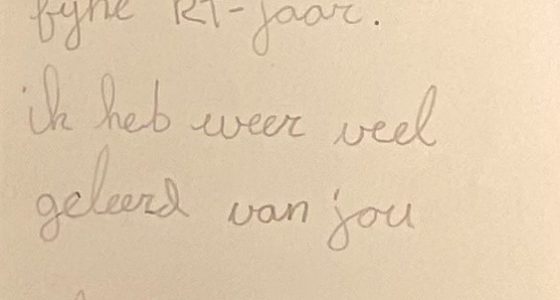 fyne RT-jaar.
ik heb weer veel
geleerd van jou